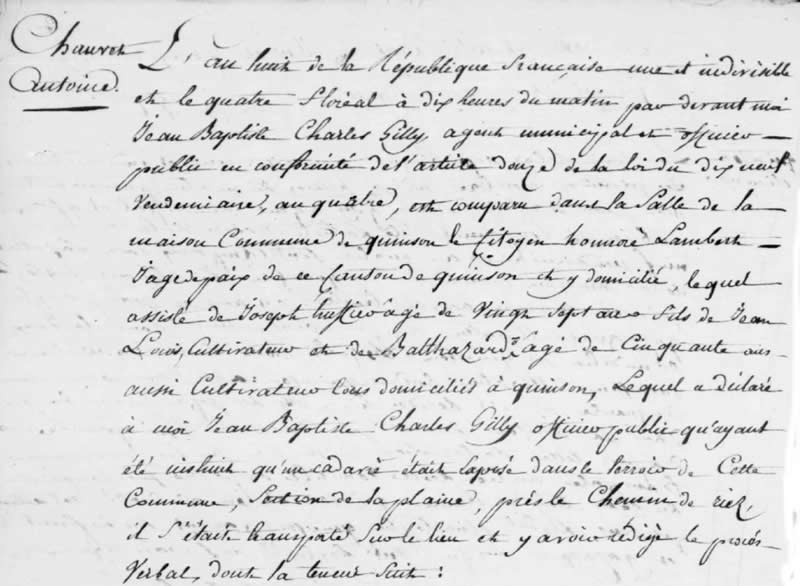 Chauvet
Antoine.
L'an huit de la République française une et indivisible
et le quatre floréal à dix heures du matin par devant moi
Jean Baptiste Charles Gilly agent municipal et officier
public en conformité de l'article douze de la loi du dix neuf
Vendemiaire, an quatre, est comparu dans la Salle de la
maison Commune de quinson le Citoyen honnoré Lambert
Juge de paix de ce Canton de quinson et y domicilié, lequel
assisté de Joseph agé de Vingt Sept ans fils de Jean
Louis, Cultivateur et de Balthazard agé de Cinquante ans
aussi Cultivateur tous domiciliés à quinson, Lequel a déclaré
à moi Jean Baptiste Charles Gilly officier public qu'ayant
été instruit qu'un cadavre était exposé dans le terroir de Cette
Commune, Section de la plaine, près le Chemin de riez,
il s'était transporté Sur le lieu et y avoir rédigé le procés
Verbal, dont la teneur Suit :